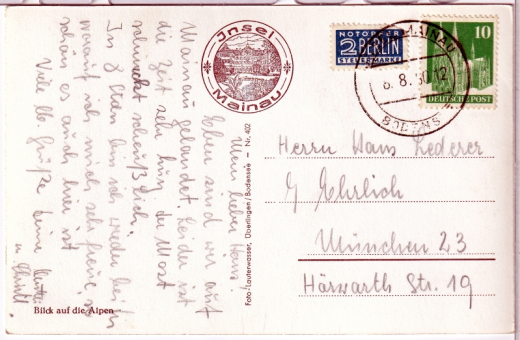 Mein lieber Hans,
Eben sind wir auf
Mainau gelandet. Leider ist
die Zeit sehr kurz, der Most
schmeckt scheußlich.
In 8 Tagen bin ich wieder bei Dir
worauf ich mich sehr freue, so
schön es auch hier ist
Viele Grüße Deine
u.
Blick auf die Alpen
Insel
Mainau
Foto-Lauterwasser, Überlingen/Bodensee — Nr. 402
NOTOPFER
2 BERLIN
STEUERMARKE
10
DEUTSCHE POST
MAINAU
8.50.12
Herrn Hans Lederer
b/ Ehrlich
München 23
Hörwarth Str. 19